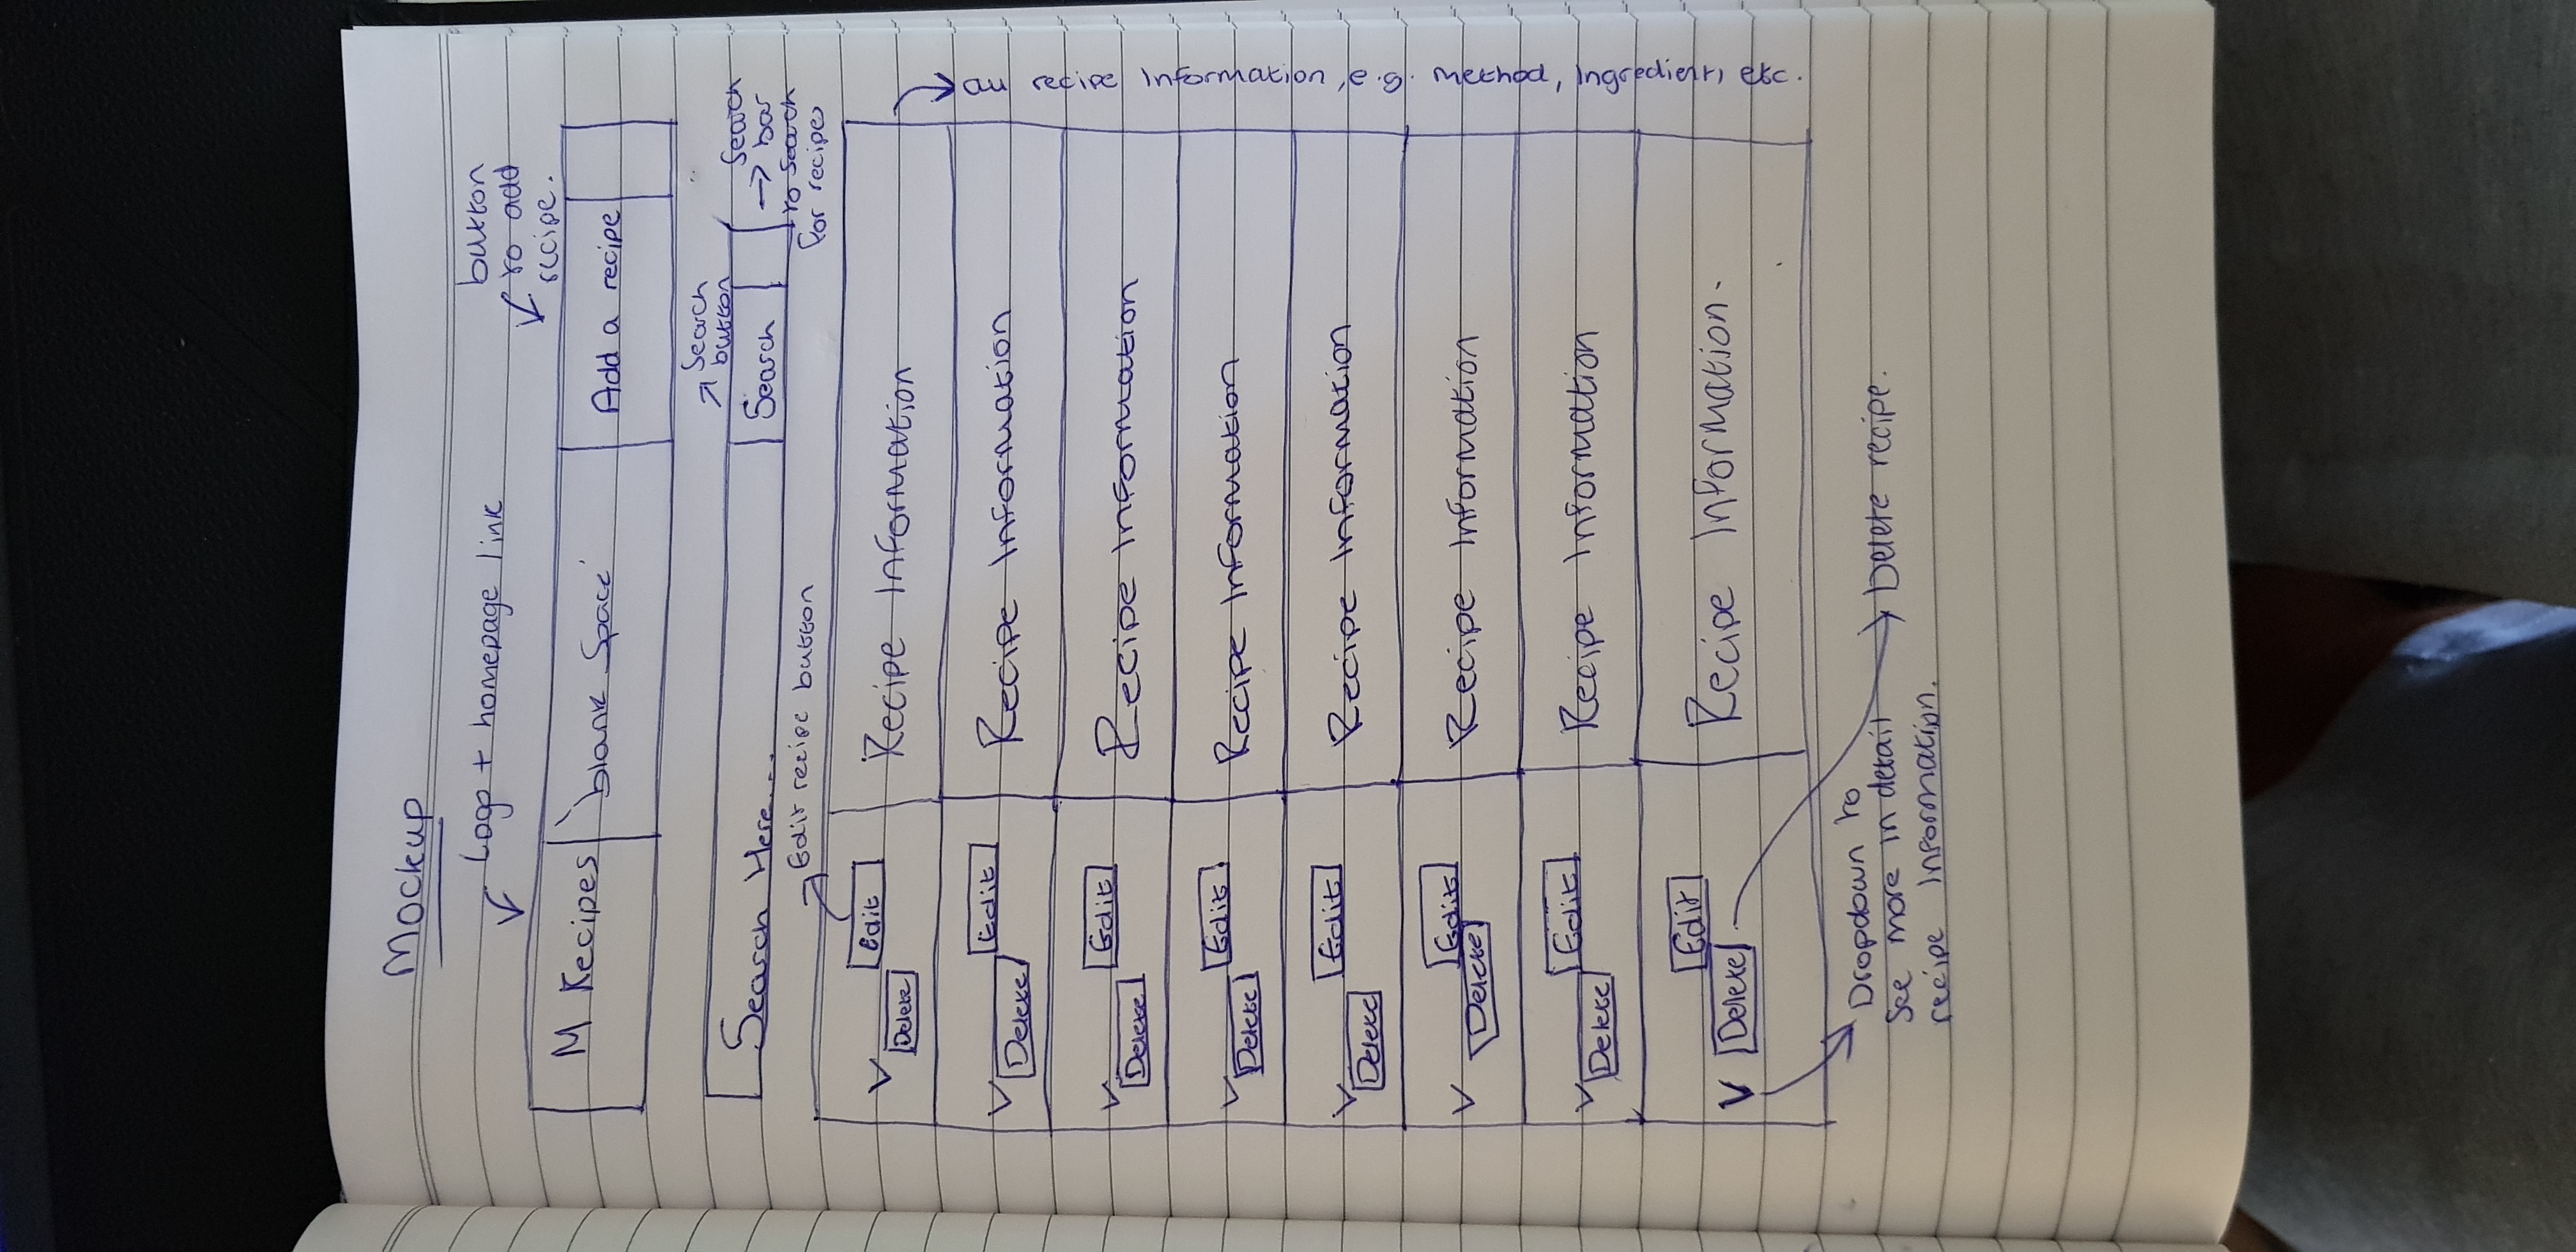 Mockup
Logo + homepage link
button
to add
recipe.
M Recipes
'blank Space'
Add a recipe
Search
button
Search Here...
Search
Search
bar
to Search
for recipes
Edit recipe button
Edit
Delete
Recipe Information
Edit
Delete
Recipe Information
Edit
Delete
Recipe Information
Edit
Delete
Recipe Information
Edit
Delete
Recipe Information
Edit
Delete
Recipe Information
Edit
Delete
Recipe Information
Edit
Delete
Recipe Information.
all recipe information, e.g. method, ingredients, etc.
Dropdown to
See more in detail
recipe Information.
Delete recipe.